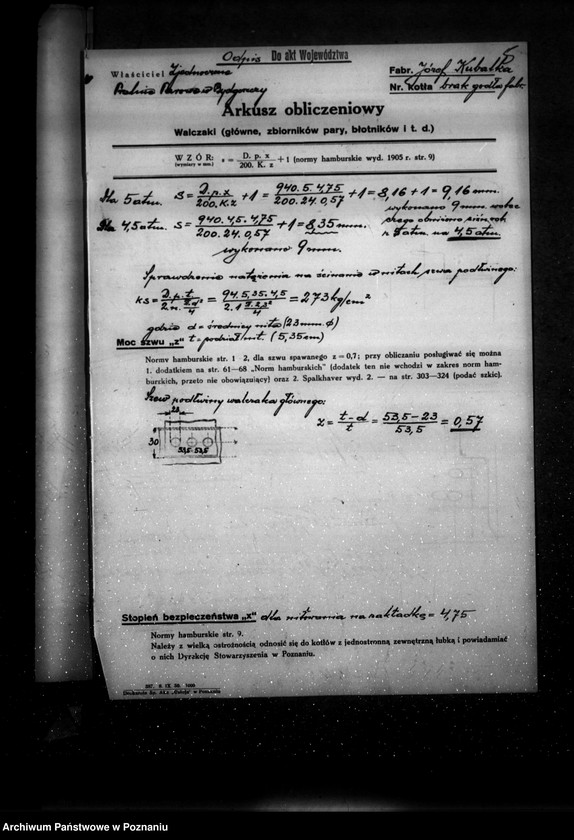 Odpis Do akt Województwa 5
Właściciel Zjednoczone Fabr. Józef Kubalka
w Bydgoszczy Nr. Kotła brak godła fabr.
Arkusz obliczeniowy
Walczaki (główne, zbiorników pary, błotników i t. d.)
WZÓR: (wymiary w mm.) s = D. p. x / 200. K. z + 1 (normy hamburskie wyd. 1905 r. str. 9)
Dla 5 atm. s = D.p.x / 200.K.z + 1 = 940.5.4,75 / 200.24.0,57 + 1 = 8,16 + 1 = 9,16 mm.
wykonano 9 mm. wobec
czego obniżono ciśnienie
Dla 4,5 atm. s = 940.4,5.4,75 / 200.24.0,57 + 1 = 8,35 mm. z 5 atm. na 4,5 atm.
wykonano 9 mm.
Sprawdzenie natężenia na ścinanie w nitach szwa podłużnego:
ks = D.p.t. / 2.n. π d² / 4 = 94.5,35.4,5 / 2.1 π 2,3² / 4 = 273 kg/cm²
gdzie d = średnicy nita (23 mm. φ)
Moc szwu „z" t = podział nit. (5,35 cm)
Normy hamburskie str. 1—2, dla szwu spawanego z = 0,7; przy obliczaniu posługiwać się można
1. dodatkiem na str. 61—68 „Norm hamburskich" (dodatek ten nie wchodzi w zakres norm ham-
burskich, przeto nie obowiązujący) oraz 2. Spalkhaver wyd. 2. — na str. 303—324 (podać szkic).
Szew podłużny walczaka głównego:
23
30
53,5 53,5
z = t - d / t = 53,5 - 23 / 53,5 = 0,57
Stopień bezpieczeństwa „x" dla nitowania na zakładkę = 4,75
Normy hamburskie str. 9.
Należy z wielką ostrożnością odnosić się do kotłów z jednostronną zewnętrzną łubką i powiadamiać
o nich Dyrekcję Stowarzyszenia w Poznaniu.
Archiwum Państwowe w Poznaniu
szukajwarchiwach.gov.pl